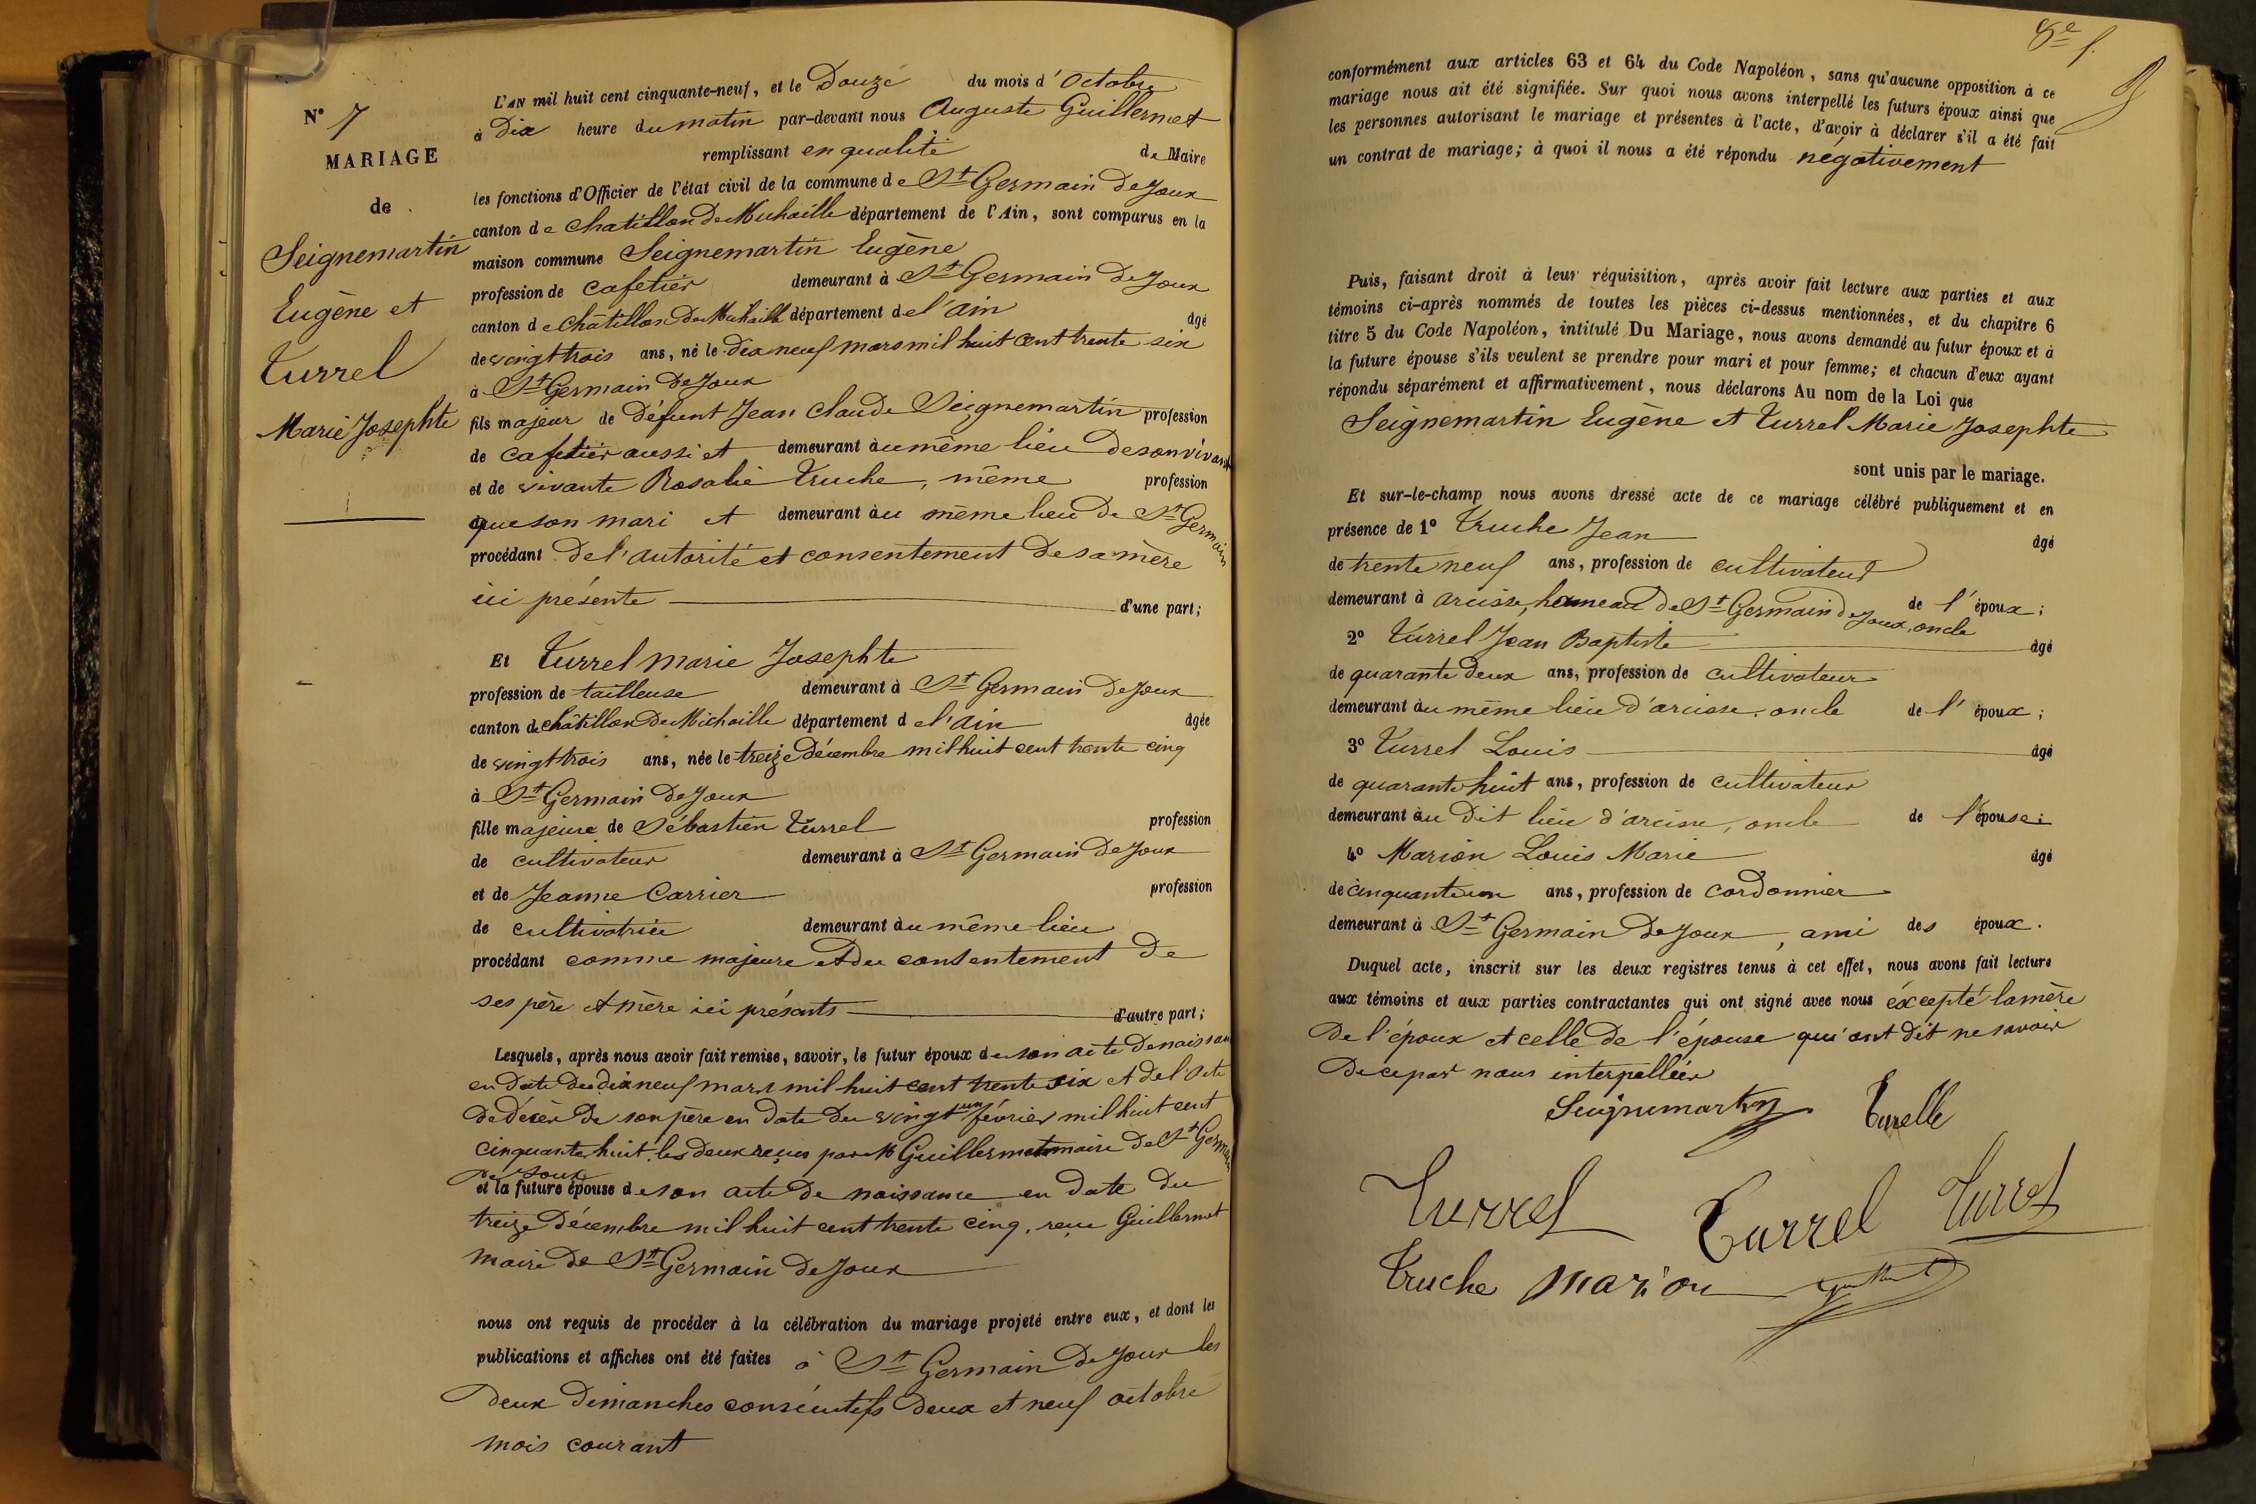 N° 7
MARIAGE
de
Seignemartin
Eugène et
Turrel
Marie Josephte
L'AN mil huit cent cinquante-neuf, et le Douze du mois d'Octobre
à Dix heure du matin par-devant nous Auguste Guillermet
remplissant en qualité de Maire
les fonctions d'Officier de l'état civil de la commune de St Germain De Joux
canton de Chatillon De Michaille département de l'Ain, sont comparus en la
maison commune Seignemartin Eugène
profession de cafetier demeurant à St Germain De Joux
canton de Châtillon De Michaille département de l'ain âgé
de vingt trois ans, né le dix neuf mars mil huit cent trente six
à St Germain De Joux
fils majeur de Défunt Jean Claude Seignemartin profession
de cafetier aussi et demeurant àu même lieu De son vivant
et de vivante Rosalie Truche, même profession
que son mari et demeurant àu même lieu De St Germain
procédant De l'autorité et consentement De sa mère
ici présente d'une part;
Et Turrel marie Josephte
profession de tailleuse demeurant à St Germain De Joux
canton de châtillon De Michaille département de l'ain âgée
de vingt trois ans, née le treize Décembre mil huit cent trente cinq
à St Germain De Joux
fille majeure de Sébastien Turrel profession
de cultivateur demeurant à St Germain De Joux
et de Jeanne Carrier profession
de cultivatrice demeurant àu même lieu
procédant comme majeure et du consentement De
ses père et mère ici présents d'autre part;
Lesquels, après nous avoir fait remise, savoir, le futur époux de son acte De naissan
en Date du dix neuf mars mil huit cent trente six et De l'acte
De décès De son père en Date du vingt un février mil huit cent
cinquante huit les deux reçus par M Guillermet maire De St Germain
De Joux
et la future épouse de son acte De naissance en Date Du
treize Décembre mil huit cent trente cinq, reçu Guillermet
maire De St Germain De Joux
nous ont requis de procéder à la célébration du mariage projeté entre eux, et dont les
publications et affiches ont été faites à St Germain De Joux les
Deux Dimanches consécutifs Deux et neuf octobre
mois courant
conformément aux articles 63 et 64 du Code Napoléon, sans qu'aucune opposition à ce
mariage nous ait été signifiée. Sur quoi nous avons interpellé les futurs époux ainsi que
les personnes autorisant le mariage et présentes à l'acte, d'avoir à déclarer s'il a été fait
un contrat de mariage; à quoi il nous a été répondu négativement
Puis, faisant droit à leur réquisition, après avoir fait lecture aux parties et aux
témoins ci-après nommés de toutes les pièces ci-dessus mentionnées, et du chapitre 6
titre 5 du Code Napoléon, intitulé Du Mariage, nous avons demandé au futur époux et à
la future épouse s'ils veulent se prendre pour mari et pour femme; et chacun d'eux ayant
répondu séparément et affirmativement, nous déclarons Au nom de la Loi que
Seignemartin Eugène et Turrel Marie Josephte
sont unis par le mariage.
Et sur-le-champ nous avons dressé acte de ce mariage célébré publiquement et en
présence de 1° Truche Jean âgé
de trente neuf ans, profession de cultivateur
demeurant à arcisse, hameau De St Germain De Joux, oncle de l'époux;
2° Turrel Jean Baptiste âgé
de quarante deux ans, profession de cultivateur
demeurant àu même lieu d'arcisse. oncle de l'époux;
3° Turrel Louis âgé
de quarante huit ans, profession de cultivateur
demeurant àu Dit lieu d'arcisse, oncle de l'épouse;
4° Marion Louis Marie âgé
de cinquante un ans, profession de cordonnier
demeurant à St Germain De Joux, ami des époux.
Duquel acte, inscrit sur les deux registres tenus à cet effet, nous avons fait lecture
aux témoins et aux parties contractantes qui ont signé avec nous éxcepté la mère
De l'époux et celle De l'épouse qui ont Dit ne savoir
De ce par nous interpellées
Seignemartin Turelle
Turrel Turrel Turrel
Truche Marion